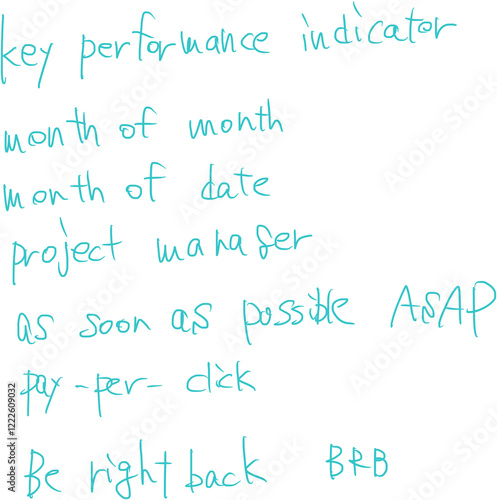 key performance indicator
month of month
month of date
project manager
as soon as possible ASAP
pay-per-click
Be right back BRB
Adobe Stock | #1222609032